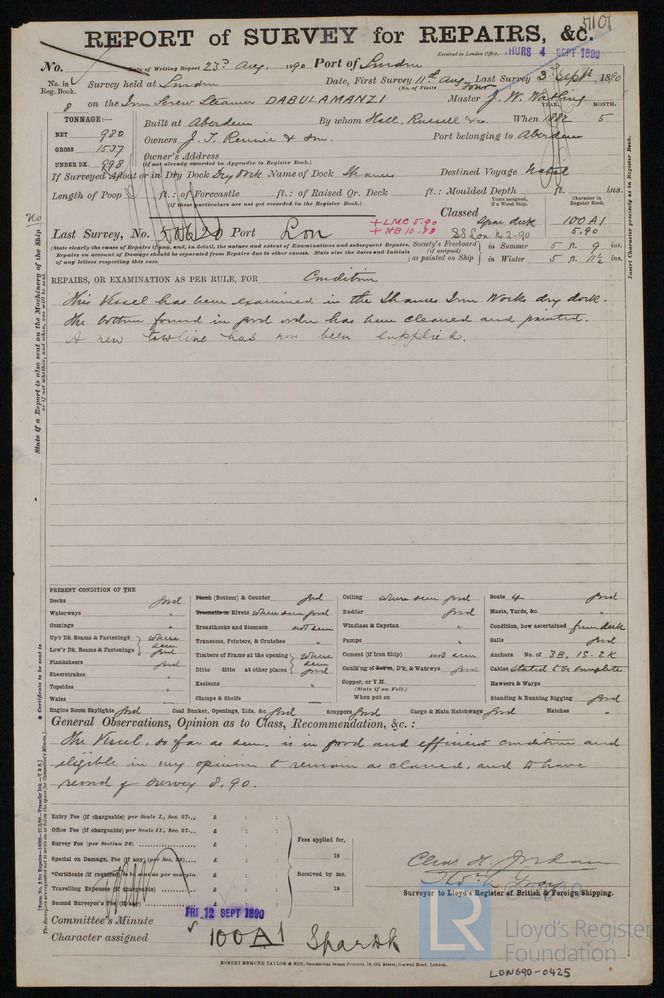 5101
REPORT of SURVEY for REPAIRS, &c.
Received in London Office, THURS 4 SEPT 1890
No. Date of Writing Report 23rd Aug. 1890 Port of London
No. in Reg. Book. Survey held at London Date, First Survey 11th Aug Last Survey 3rd Septr 1890
(No. of Visits
8 on the Iron Screw Steamer DABULAMANZI Master J. W. Watling
TONNAGE:— YEAR. MONTH.
Built at Aberdeen By whom Hall, Russell & Co. When 1882 5
NET 980
GROSS 1537 Owners J. T. Rennie & Son. Port belonging to Aberdeen
UNDER DK. 998 Owner's Address
(if not already recorded in Appendix to Register Book.)
If Surveyed Afloat or in Dry Dock Dry Dock Name of Dock Thames Destined Voyage Natal
Length of Poop ft.: of Forecastle ft.: of Raised Qr. Deck ft.: Moulded Depth ft. ins.
(if these particulars are not yet recorded in the Register Book.)
Years assigned, if a Wood Ship. Character in Register Book.
Classed Spar deck 100A1
+LMC 5.90 5.90
Last Survey, No. 50620 Port Lon +NB 10.88 SS Lon No 2-90
(State clearly the cause of Repairs if any, and, in detail, the nature and extent of Examinations and subsequent Repairs.
Repairs on account of Damage should be separated from Repairs due to other causes. State also the dates and Initials
of any letters respecting this case.
Society's Freeboard (if assigned) as painted on Ship in Summer 5 ft. 9 ins.
in Winter 5 ft. 11½ ins.
REPAIRS, OR EXAMINATION AS PER RULE, FOR Condition
This Vessel has been examined in the Thames Iron Works dry dock.
The bottom found in good order has been cleaned and painted.
A new towline has now been supplied.
PRESENT CONDITION OF THE
Decks good
Waterways "
Comings "
Up'r Dk. Beams & Fastenings where seen good
Low'r Dk. Beams & Fastenings
Planksheers good
Sheerstrakes "
Topsides "
Wales "
Plank (Bottom) & Counter good
Treenails or Rivets where seen good
Breasthooks and Stemson not seen
Transoms, Pointers, & Crutches "
Timbers of Frame at the opening where seen good
Ditto ditto at other places
Keelsons "
Clamps & Shelfs "
Ceiling where seen good
Rudder good
Windlass & Capstan "
Pumps "
Cement (if Iron Ship) not seen
Caulk'ng of Bot'm, D'k, & Watrwys good
Copper, or Y.M.
(State if on Felt.)
When put on
Boats 4 good
Masts, Yards, &c. "
Condition, how ascertained from deck
Sails good
Anchors No. of 3B, 1S. 2K
Cables stated to be complete
Hawsers & Warps "
Standing & Running Rigging good
Engine Room Skylights good Coal Bunker, Openings, Lids, &c. good Scuppers good Cargo & Main Hatchways good Hatches "
General Observations, Opinion as to Class, Recommendation, &c.:
The Vessel, so far as seen, is in good and efficient condition and
eligible in my opinion to remain as classed, and to have
record of survey 8.90.
Entry Fee (if chargeable) per Scale I., Sec. 27... £ : :
Office Fee (if chargeable) per Scale II., Sec. 27... £ : :
Survey Fee (per Section 28) £ : :
Special on Damage, Fee (if any) (per Sec. 28) £ : :
*Certificate (if required) to be sent as per margin £ : :
Travelling Expenses (if chargeable) £ : :
Second Surveyor's Fee (if any) £ : :
Fees applied for,
18
Received by me,
18
Chas H. Jordan
Thos. L. Gray
Surveyor to Lloyd's Register of British & Foreign Shipping.
Committee's Minute FRI. 12 SEPT 1890
Character assigned 100A1 Spar dk
ROBERT EDMUND TAYLOR & SON, Commercial Steam Printers, 19, Old Street, Goswell Road, London.
No
State if a Report is also sent on the Machinery of the Ship
or if not whether, and when, one will be sent
* Certificate to be sent to
Insert Character precisely as in Register Book.
LR
Lloyd's Register
Foundation
LON690-0425